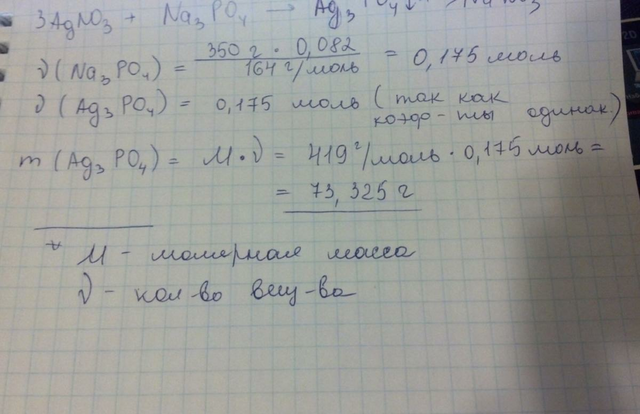 3AgNO₃ + Na₃PO₄ → Ag₃PO₄↓
ν(Na₃PO₄) = 350 г · 0,082 / 164 г/моль = 0,175 моль
ν(Ag₃PO₄) = 0,175 моль (так как
коэф-ты одинак.)
m(Ag₃PO₄) = M·ν = 419 г/моль · 0,175 моль =
= 73,325 г
* M - молярная масса
ν - кол-во вещ-ва